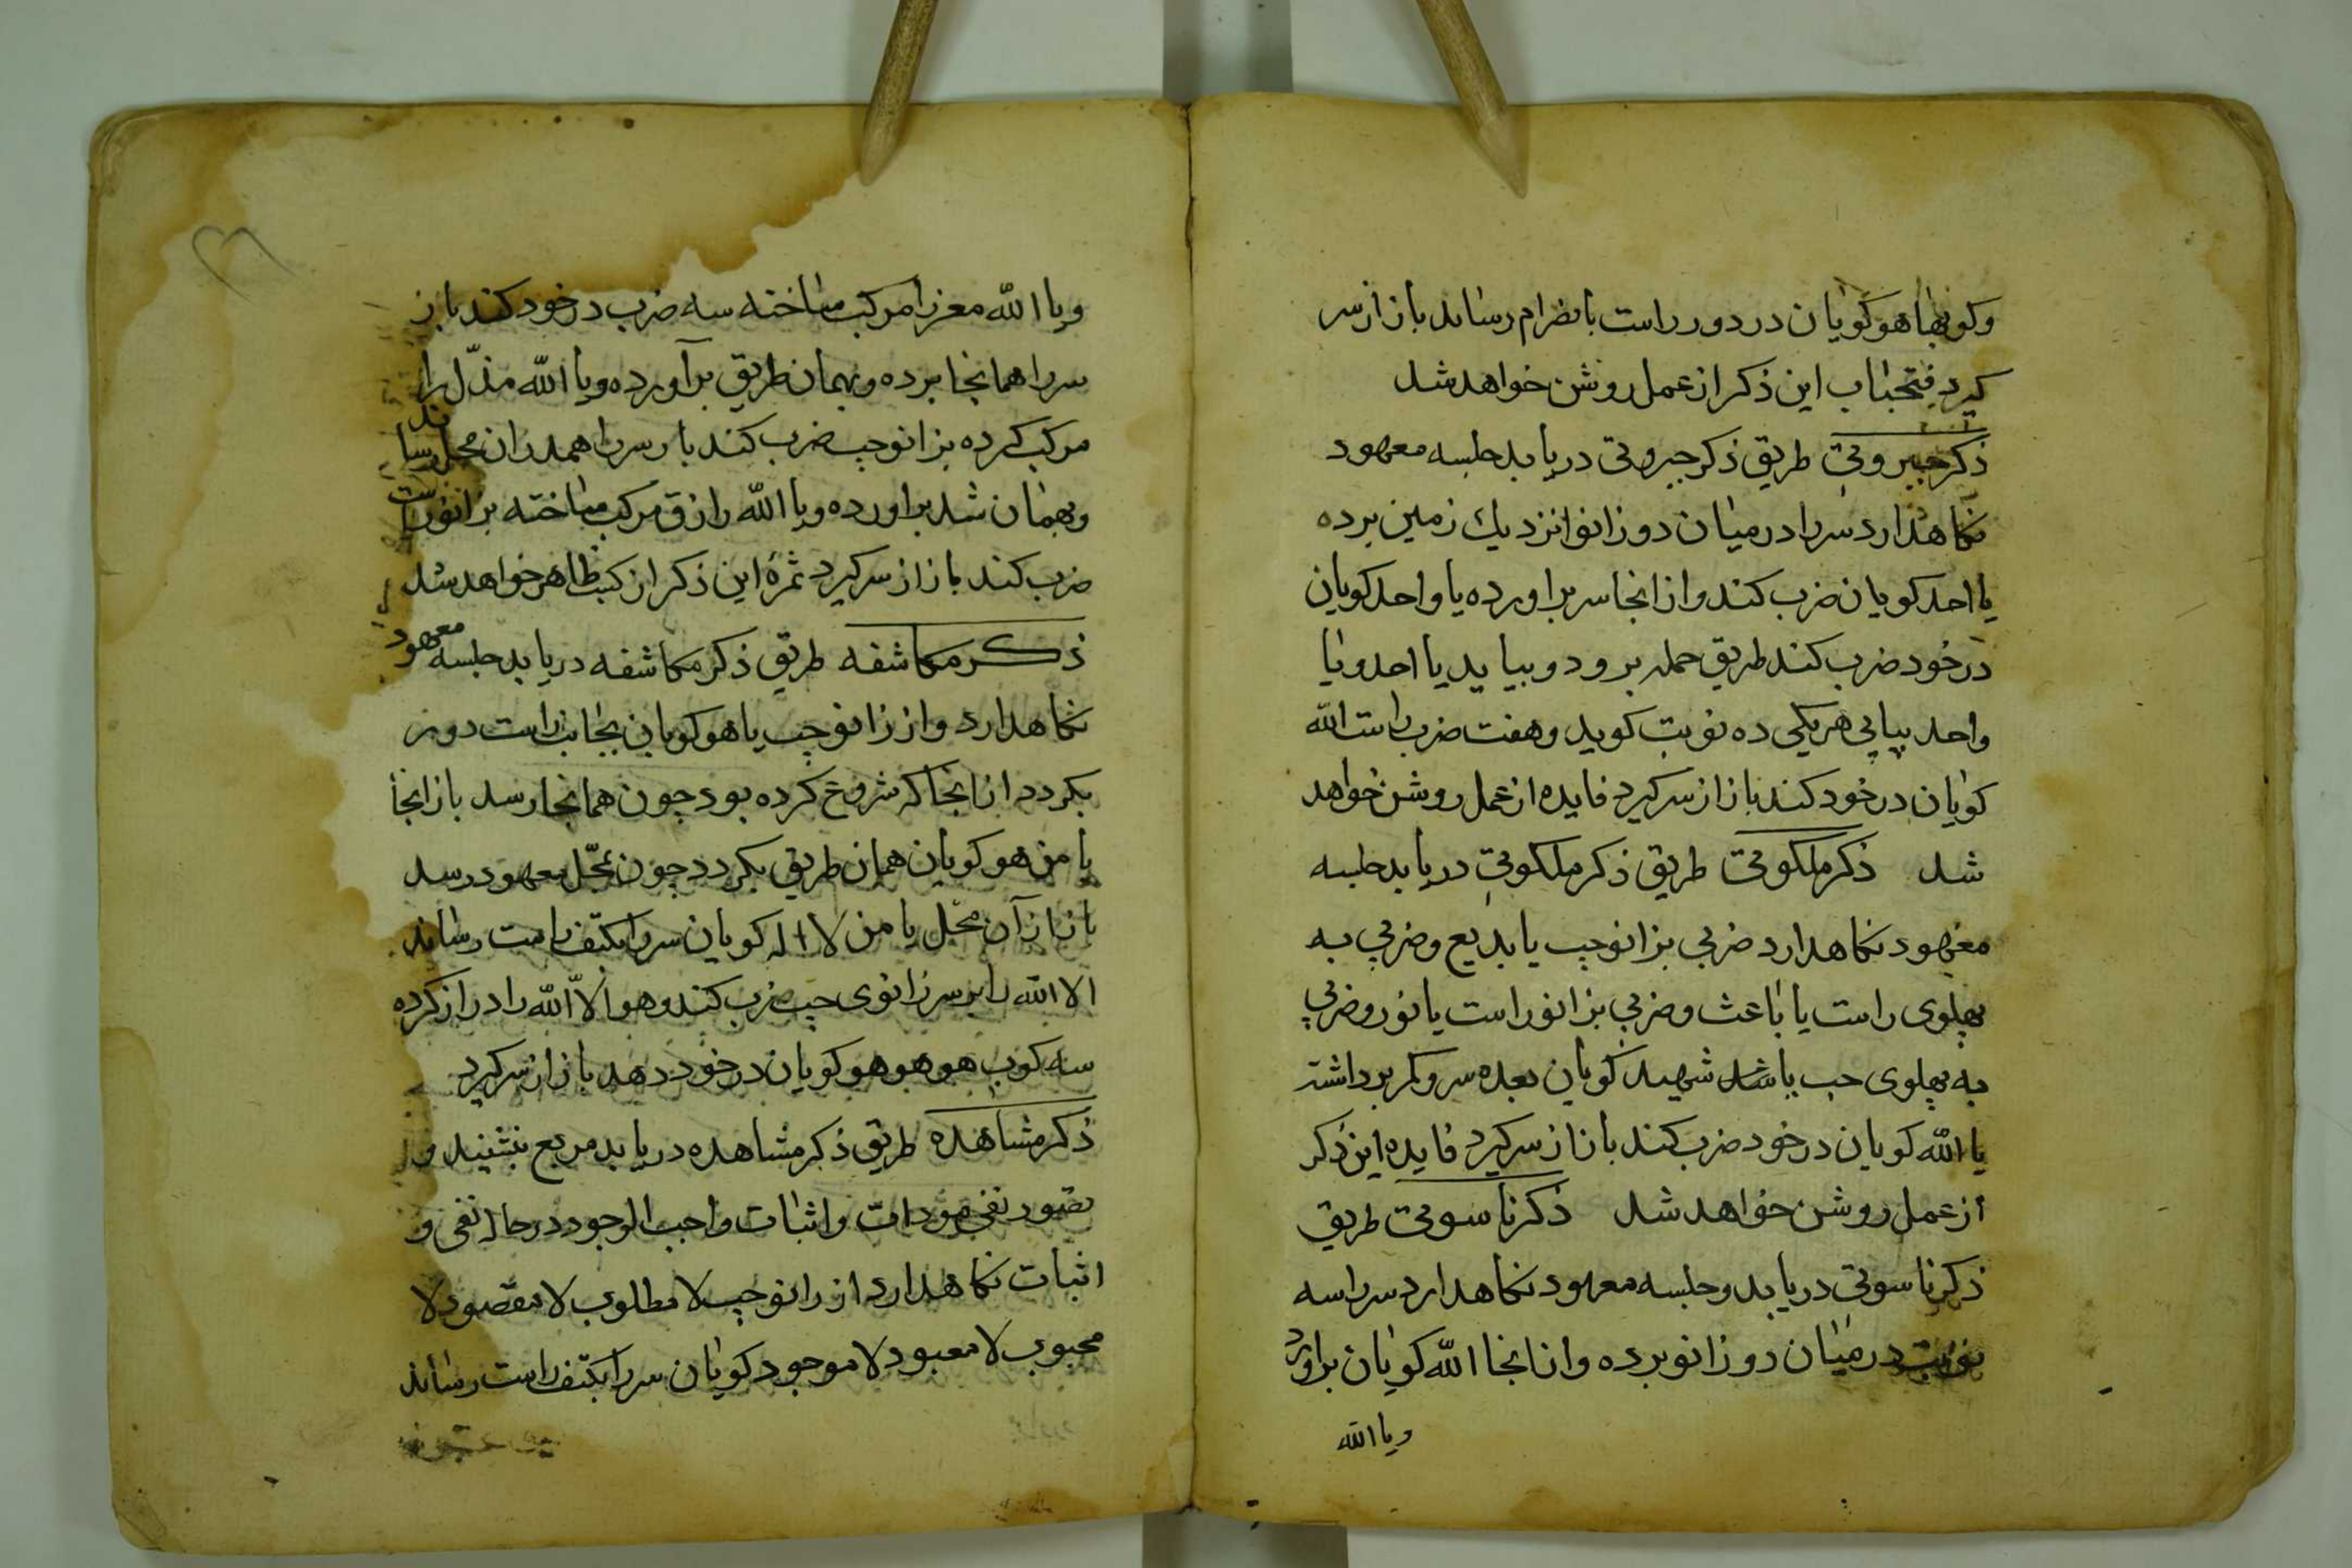 وکوبها هو کویان در دور راست بانصرام رساند باز از سر
کیرد فتحباب این ذکر از عمل روشن خواهد شد
ذکر جبروتی طریق ذکر جبروتی دریابد جلسه معهود
نکاهدارد سر را در میان دو زانو نزدیك زمین برده
یا احد کویان ضرب کند و از انجا سر براورده یا واحد کویان
در خود ضرب کند طریق حمله برود و بیاید یا احد و یا
واحد بیاپی هر یکی ده نوبت کوید و هفت ضرب راست الله
کویان در خود کند باز از سر کیرد فایده از عمل روشن خواهد
شد ذکر ملکوتی طریق ذکر ملکوتی دریابد جلسه
معهود نکاهدارد ضربی بزانو چپ یا بدیع و ضربی به
پهلوی راست یا باعث و ضربی بزانو راست یا نور و ضربی
به پهلوی چپ یا شهید کویان بعده سر و کمر برداشته
یا الله کویان در خود ضرب کند باز از سر کیرد فایده این ذکر
از عمل روشن خواهد شد ذکر ناسوتی طریق
ذکر ناسوتی دریابد و جلسه معهود نکاهدارد سر را سه
نوبت در میان دو زانو برده و از انجا الله کویان براورد
ویا الله
ویا الله معز را مرکب ساخته سه ضرب در خود کند باز
سر را همانجا برده و بهمان طریق برآورده ویا الله مذلّ را
مرکب کرده بزانو چپ ضرب کند باز سر را همدران محل رساند
وبهمان شد براورده ویا الله رازق مرکب ساخته بزانو راست
ضرب کند باز از سر کیرد ثمرهٔ این ذکر از کسب ظاهر خواهد شد
ذکر مکاشفه طریق ذکر مکاشفه دریابد جلسه معهود
نکاهدارد و از زانو چپ یا هو کویان بجانب راست دور
بکردد از انجا که شروع کرده بود چون همانجا رسد باز انجا
یا من هو کویان همان طریق بکردد چون بمحل معهود رسد
باز از آن محل یا من لا اله کویان سر را بکتف راست رساند
الا الله را بر سر زانوی چپ ضرب کند و هو الا الله را دراز کرده
سه کوب هو هو هو کویان در خود دهد باز از سر کیرد
ذکر مشاهده طریق ذکر مشاهده دریابد مربع بنشیند و
تصور نفی و اثبات واجب الوجود در حال نفی و
اثبات نکاهدارد از زانو چپ لا مطلوب لا مقصود لا
محبوب لا معبود لا موجود کویان سر را بکتف راست رساند